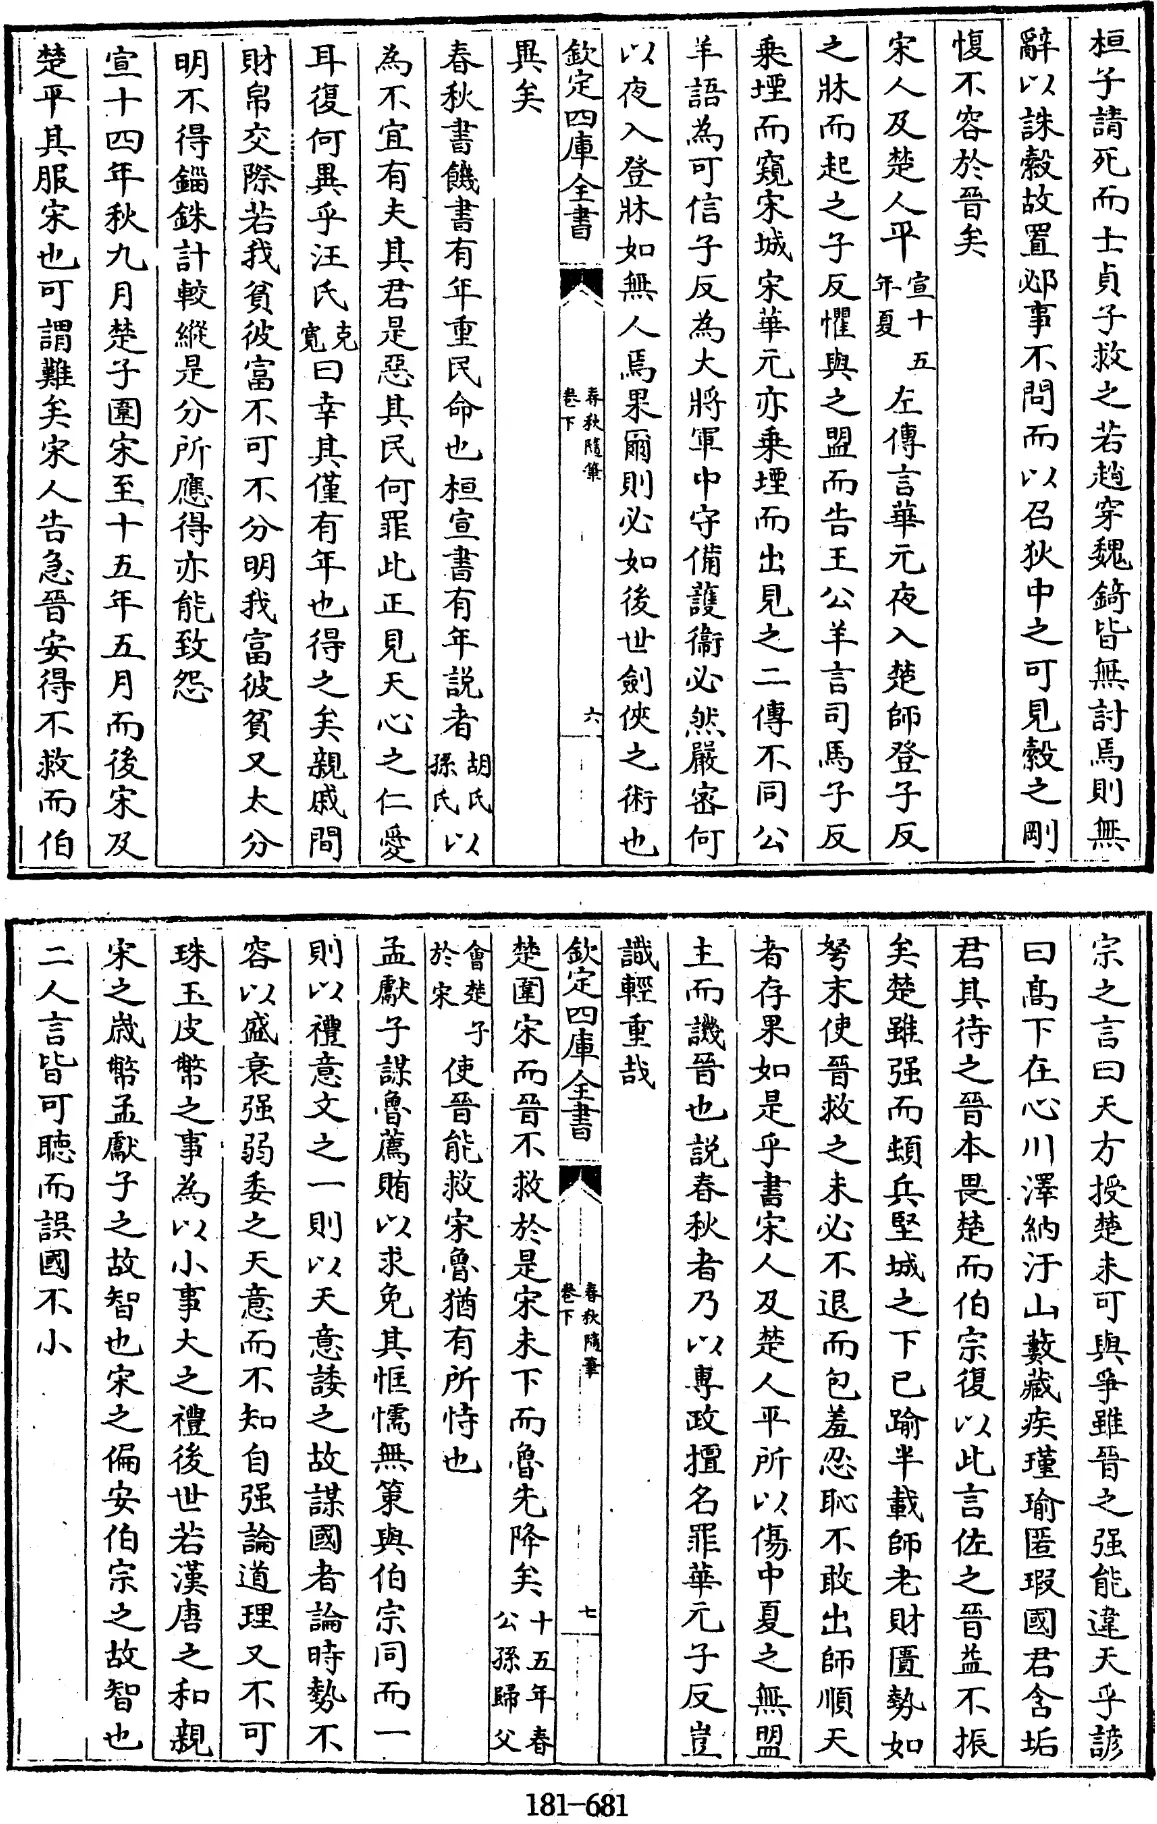 桓子請死而士貞子救之若趙穿魏錡皆無討焉則無
辭以誅縠故置邲事不問而以召狄中之可見縠之剛
愎不容於晉矣
宋人及楚人平宣十五年夏左傳言華元夜入楚師登子反
之牀而起之子反懼與之盟而告王公羊言司馬子反
乘堙而窺宋城宋華元亦乘堙而出見之二傳不同公
羊語為可信子反為大將軍中守備護衞必然嚴密何
以夜入登牀如無人焉果爾則必如後世劍俠之術也
異矣
欽定四庫全書
春秋隨筆
卷下
六
春秋書饑書有年重民命也桓宣書有年説者胡氏孫氏以
為不宜有夫其君是惡其民何罪此正見天心之仁愛
耳復何異乎汪氏克寬曰幸其僅有年也得之矣親戚間
財帛交際若我貧彼富不可不分明我富彼貧又太分
明不得錙銖計較縱是分所應得亦能致怨
宣十四年秋九月楚子圍宋至十五年五月而後宋及
楚平其服宋也可謂難矣宋人告急晉安得不救而伯
宗之言曰天方授楚未可與爭雖晉之强能違天乎諺
曰高下在心川澤納汙山藪藏疾瑾瑜匿瑕國君含垢
君其待之晉本畏楚而伯宗復以此言佐之晉益不振
矣楚雖强而頓兵堅城之下已踰半載師老財匱勢如
弩末使晉救之未必不退而包羞忍恥不敢出師順天
者存果如是乎書宋人及楚人平所以傷中夏之無盟
主而譏晉也説春秋者乃以專政擅名罪華元子反豈
識輕重哉
欽定四庫全書
春秋隨筆
卷下
七
楚圍宋而晉不救於是宋未下而魯先降矣十五年春公孫歸父
會楚子於宋使晉能救宋魯猶有所恃也
孟獻子謀魯薦賄以求免其恇懦無策與伯宗同而一
則以禮意文之一則以天意諉之故謀國者論時勢不
容以盛衰强弱委之天意而不知自强論道理又不可
珠玉皮幣之事為以小事大之禮後世若漢唐之和親
宋之歲幣孟獻子之故智也宋之偏安伯宗之故智也
二人言皆可聽而誤國不小
181-681